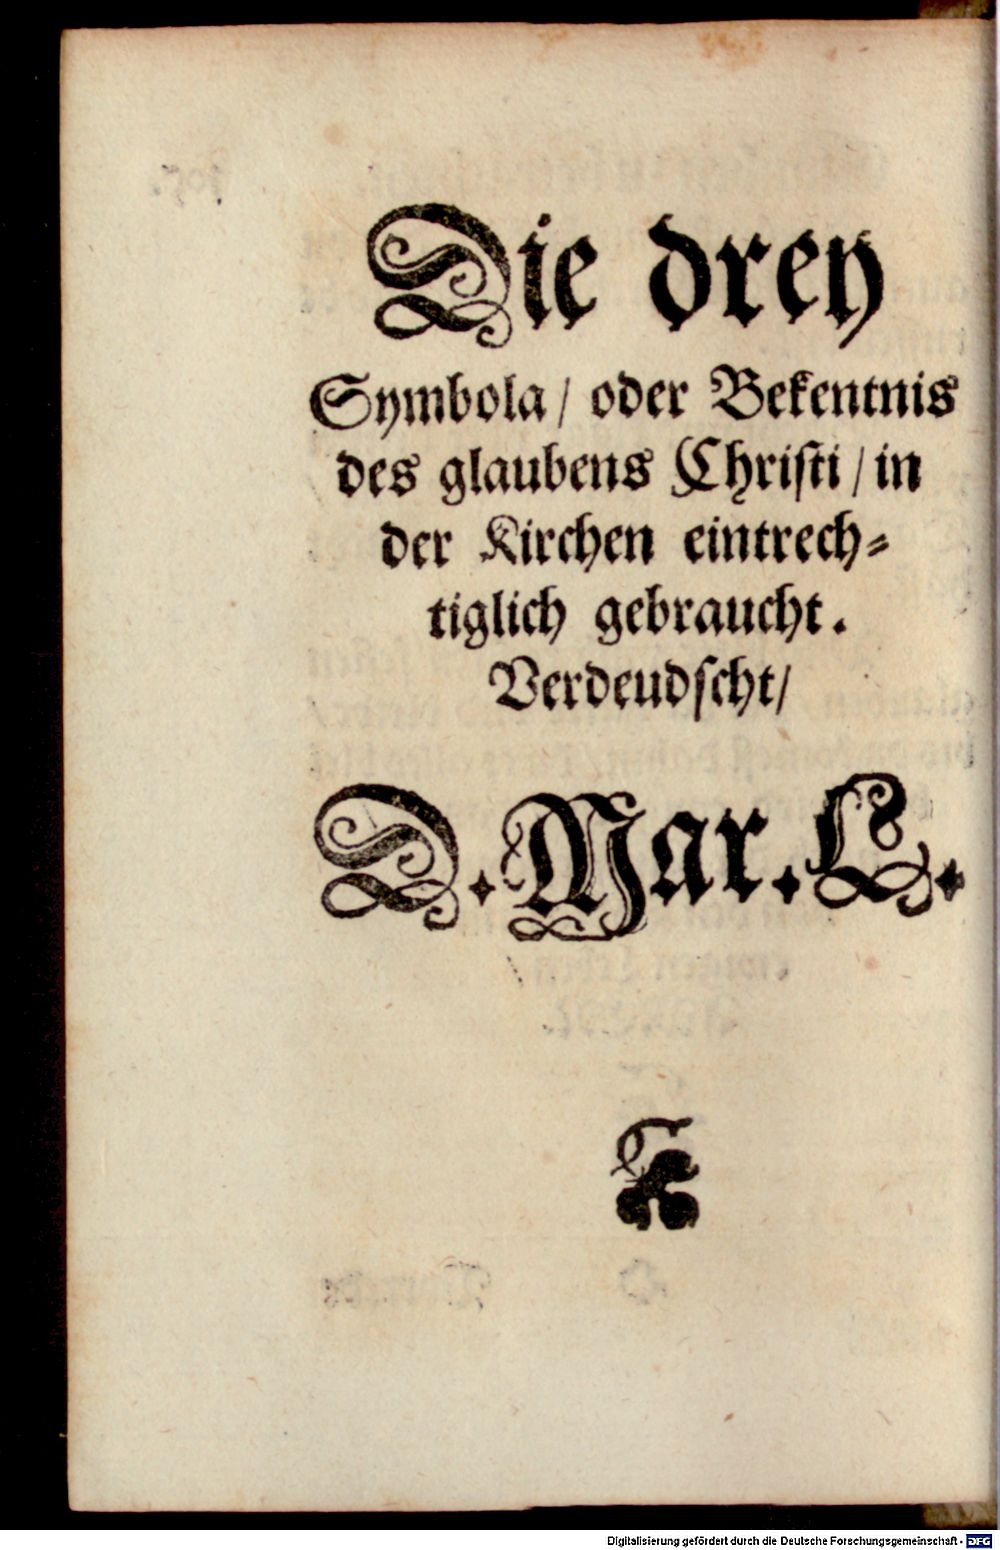 Die drey
Symbola / oder Bekentnis
des glaubens Christi / in
der Kirchen eintrech⸗
tiglich gebraucht.
Verdeudscht /
D. Mar. L.
Digitalisierung gefördert durch die Deutsche Forschungsgemeinschaft - DFG